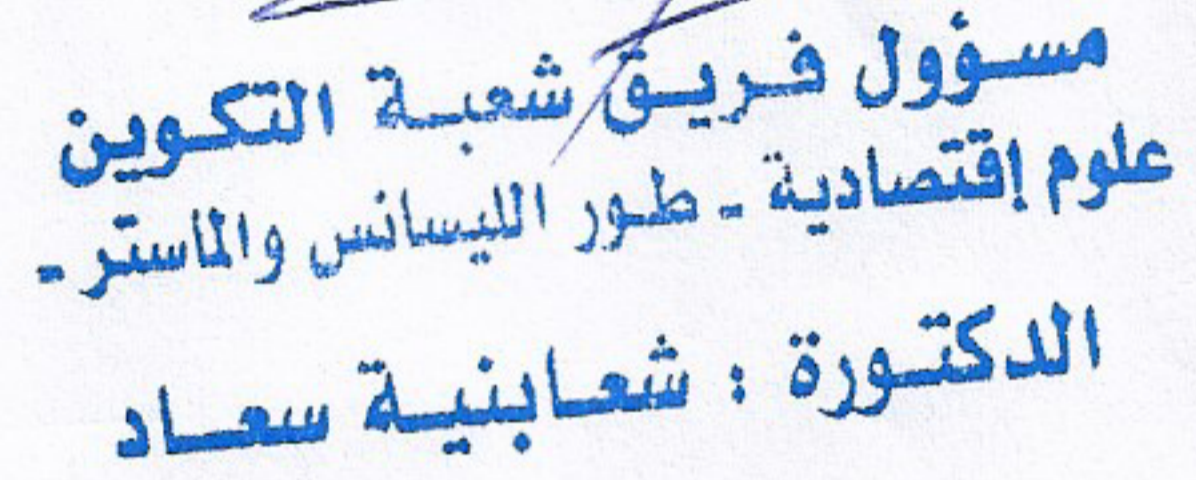 مسؤول فريق شعبة التكوين
علوم إقتصادية - طور الليسانس والماستر -
الدكتورة : شعابنية سعاد